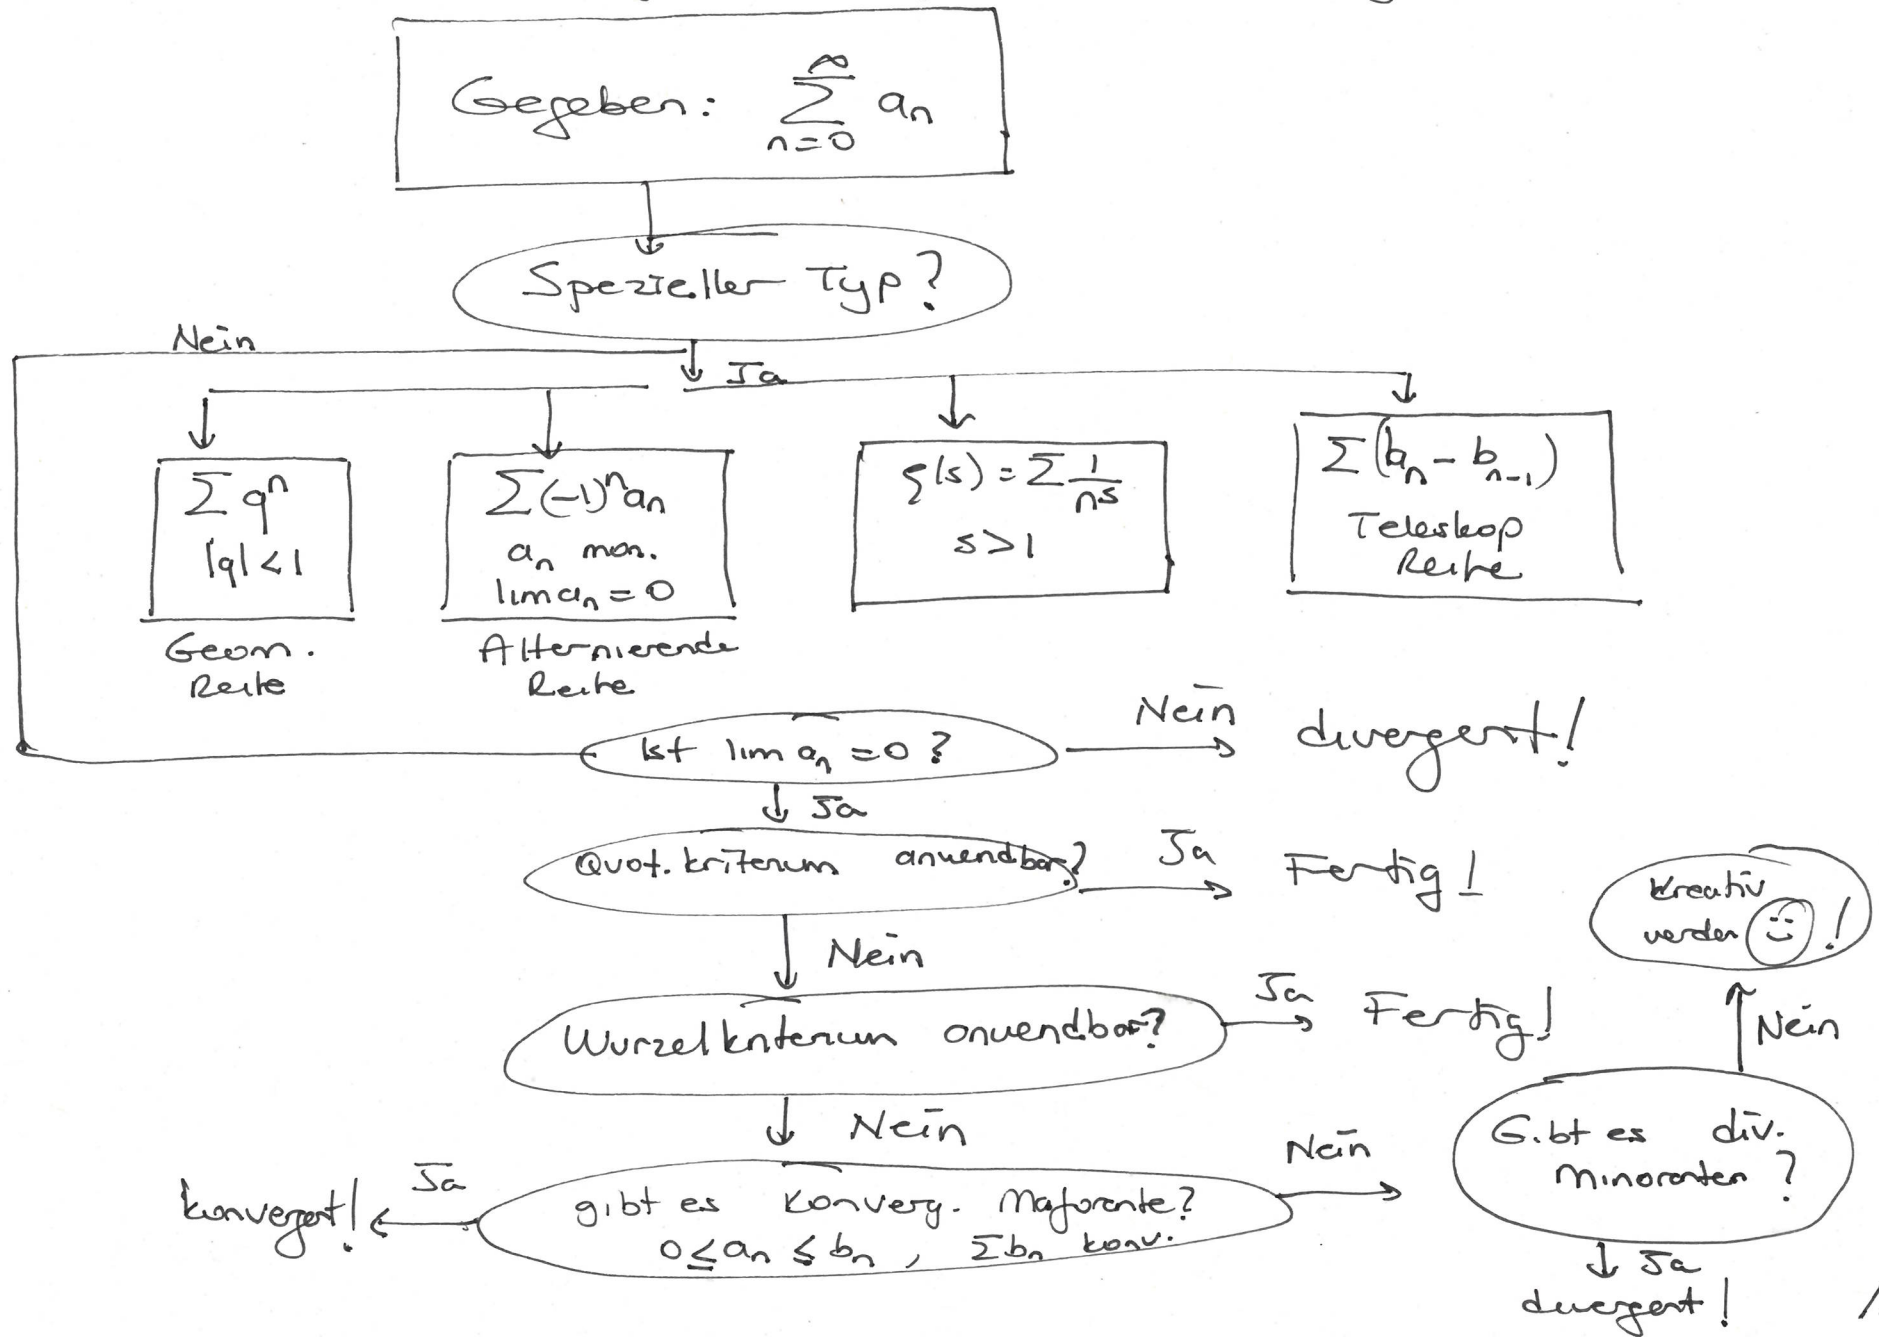 Gegeben: ∑_{n=0}^{∞} a_n
Spezieller Typ?
Nein
Ja
∑ q^n
|q| < 1
Geom.
Reihe
∑ (-1)^n a_n
a_n mon.
lim a_n = 0
Alternierende
Reihe
ζ(s) = ∑ 1/n^s
s > 1
∑ (b_n - b_{n-1})
Teleskop
Reihe
Ist lim a_n = 0 ?
Nein
divergent!
Ja
Quot.kriterium anwendbar?
Ja
Fertig!
Nein
Wurzelkriterium anwendbar?
Ja
Fertig!
Nein
gibt es konverg. Majorante?
0 ≤ a_n ≤ b_n , ∑ b_n konv.
Ja
konvergent!
Nein
Gibt es div.
Minoranten ?
Nein
kreativ
werden !
Ja
divergent!